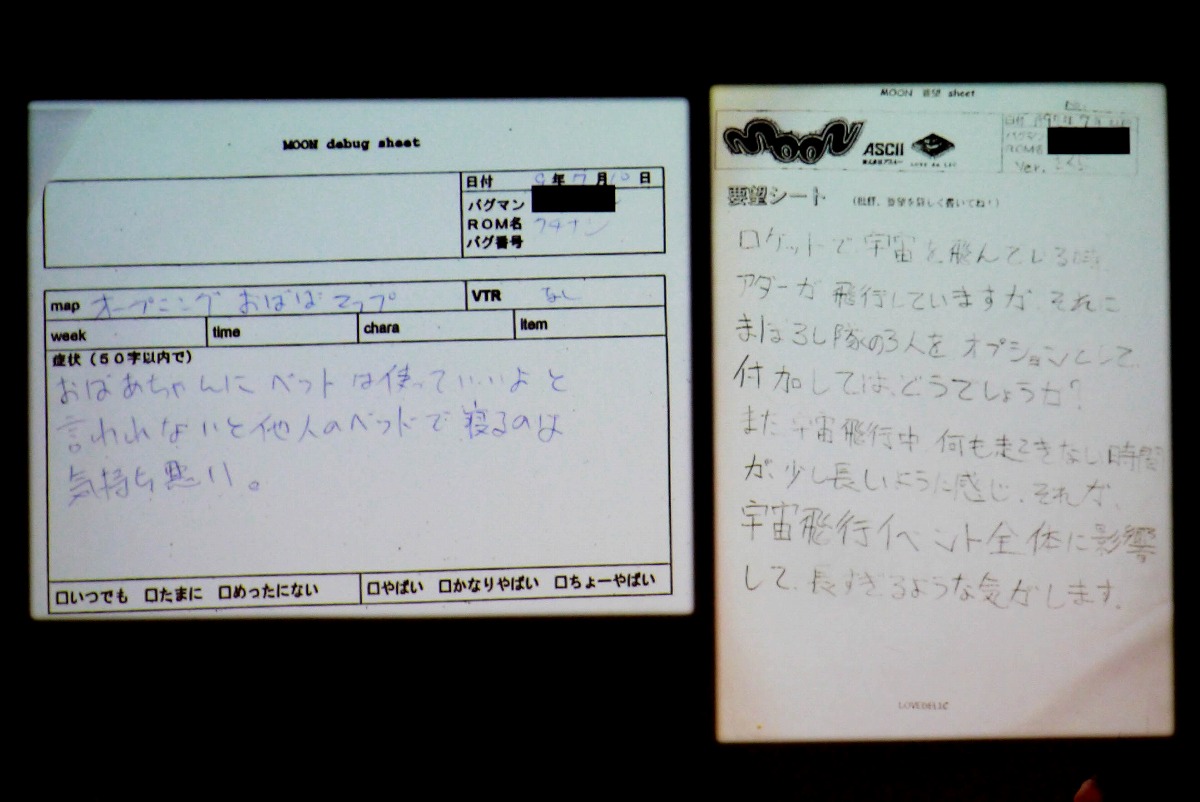 MOON debug sheet
日付 9年7月10日
バグマン
ROM名 ワチナン
バグ番号
map オープニング おばばマップ VTR なし
week time chara item
症状(50字以内で)
おばあちゃんに ベットは使っていいよと
言われないと他人のベッドで寝るのは
気持ち悪い。
□いつでも □たまに □めったにない □やばい □かなりやばい □ちょーやばい
MOON 要望 sheet
MOON ASCII 株式会社アスキー LOVE de LIC
日付
バグマン
ROM名
Ver.
要望シート
ロケットで宇宙を飛んでいる時、
アダーが飛行していますが、それに
まぼろし隊の3人をオプションとして
付加しては、どうでしょうか?
また宇宙飛行中 何も起きない時間
が、少し長いように感じ、それが、
宇宙飛行イベント全体に影響
して、長すぎるような気がします。
LOVEDELIC